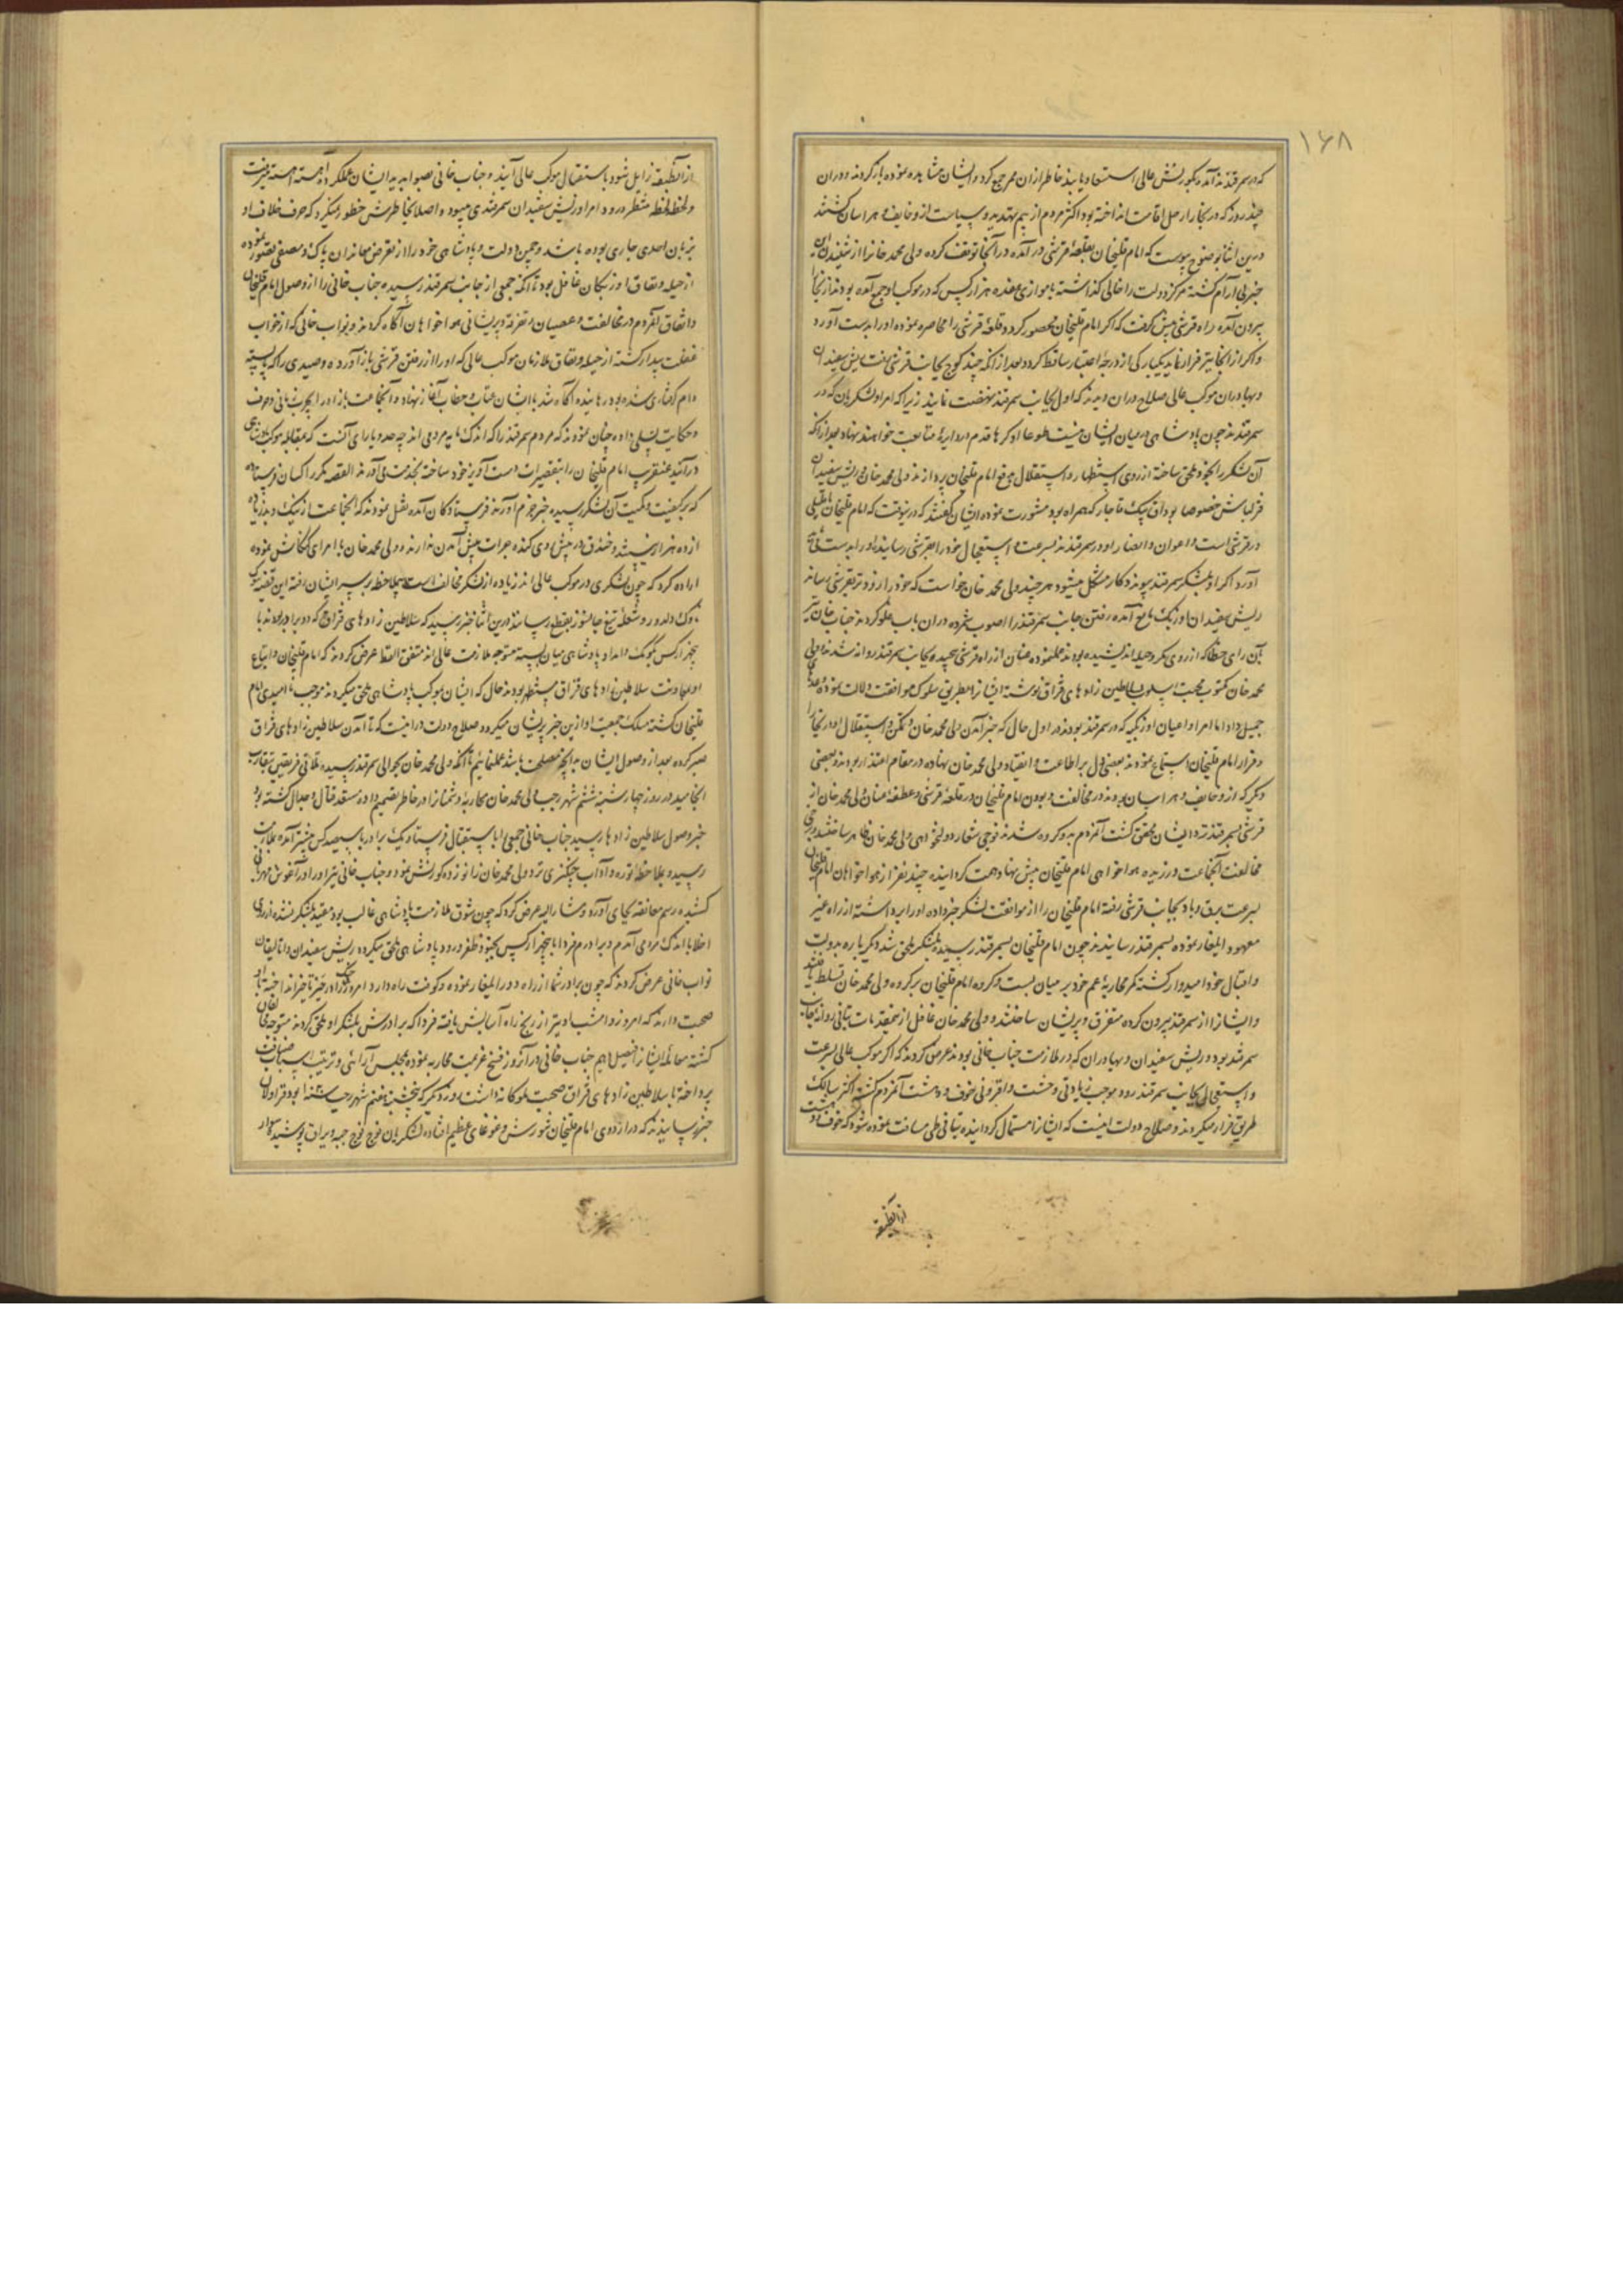 ۱۶۸
که در سمرقندند آمده بکورنش عالی استسعاد یابند خاطر از آن ممر جمع کرده ایشان مشایده نموده باز کردند و در آن
چند روز که در بخارا رحل اقامت انداخته بود اکثر مردم از بیم تهدید و سیاست از و خایف و هراسان گشتند
درین اثنا بوضوح پیوست که امام قلیخان بقلعهٔ قرشی در آمده در آنجا توقف کرده ولی محمد خان را از شنیدن این
خبر بی آرام گشته مرکز دولت را خالی گذاشته با موازی هفده هزار کس که در موکب او جمع آمده بودند از بخارا
بیرون آمده راه قرشی پیش گرفت که اگر امام قلیخان محصور گردد قلعهٔ قرشی را محاصره نموده او را بدست آورد
و اگر از آنجا نیز فرار نماید یکبارگی از درجهٔ اعتبار ساقط گردد بعد از آنکه چند کوچ بجانب قرشی رفت ریش سفیدان
و بهادران موکب عالی صلاح در آن دیدند که اول بجانب سمرقند نهضت نمایند زیرا که امرا و لشکریان که در
سمرقندند چون پادشاهی در میان ایشان نیست طوعا او کرها قدم در دایرهٔ متابعت خواهند نهاد بعد از آنکه
آن لشکر را بخود ملحق ساخته از روی استظهار و استقلال بدفع امام قلیخان پردازند ولی محمد خان بریش سفیدان
قزلباش خصوصا بوداق بیک قاجار که همراه بود مشورت نموده ایشان گفتند که درینوقت که امام قلیخان با قلیلی
در قرشی است و اعوان و انصار او در سمرقندند بسرعت و استعجال خود را بقرشی رسانیده او را بدست باید
آورد اگر او بلشکر سمرقند پیوندد کار مشکل میشود هر چند ولی محمد خان خواست که خود را زودتر بقرشی رساند
ریش سفیدان اوزبک مانع آمده رفتن جانب سمرقند را اصوب شمرده در آن باب غلو کردند جناب خان نیز
بآن رای خطا که از روی مکر و حیله اندیشیده بودند عمل نموده عنان از راه قرشی پیچیده بجانب سمرقند روانه شدند ولی
محمد خان مکتوب محبت اسلوب بسلاطین زاد های قزاق نوشته ایشانرا بطریق سلوک موافقت دلالت نموده وعدهای
جمیل داد اما امرا و اعیان اوزبکیه که در سمرقند بودند در اول حال که خبر آمدن ولی محمد خان و تمکن و استقلال او در بخارا
و فرار امام قلیخان استماع نمودند بعضی دل بر اطاعت و انقیاد ولی محمد خان نهاده در مقام اعتذار بودند و بعضی
دیگر که از و خایف و هراسان بودند در مخالفت و بودن امام قلیخان در قلعهٔ قرشی و عطفهٔ عنان ولی محمد خان از
قرشی بسمرقند نزد ایشان محقق گشت آنمردم بدو کروه شدند فوجی شعار دولتخواهی ولی محمد خان ظاهر ساختند و برخی
مخالفت آنجماعت ورزیده هواخواهی امام قلیخان پیش نهاد همت گردانیده چند نفر از هواخواهان امام قلیخان
بسرعت برق و باد بجانب قرشی رفته امام قلیخان را از موافقت لشکر خبر داده او را برداشته از راه غیر
معهود ایلغار نموده بسمرقند رسانیدند چون امام قلیخان بسمرقند رسیده بلشکر ملحق شد دیگرباره بدولت
و اقبال خود امیدوار گشته کمر محاربهٔ عم خود بر میان بست و کروه امام قلیخان بر کروه ولی محمد خان تسلط یافتند
و ایشانرا از سمرقند بیرون کرده متفرق و پریشان ساختند و ولی محمد خان غافل از تمهید مقدمات بتانی روانهٔ جانب
سمرقند بود و ریش سفیدان و بهادران که در ملازمت جناب خانی بودند عرض کردند که اگر موکب عالی بسرعت
و استعجال بجانب سمرقند رود موجب زیادتی وحشت و افزونی خوف و دهشت آنمردم گشته اکثر سالک
طریق فرار میکردند و صلاح دولت اینست که ایشانرا مستمال گردانیده بتانی طی مسافت نموده شود که خوف و دهشت
از آنطبقه
از آنطبقه زایل شود باستقبال موکب عالی آیند و جناب خانی بصوابدید ایشان عمل کرده آهسته آهسته میرفت
و لحظه لحظه منتظر ورود امرا و ریش سفیدان سمرقندی میبود و اصلا بخاطرش خطور نمیکرد که حرف خلاف او
بزبان احدی جاری بوده باشد و چمن دولت و پادشاهی خود را از تعرض معاندان پاک و مصفی تصور نموده
از حیله و نفاق اوزبکان غافل بود تا آنکه جمعی از جانب سمرقند رسیده جناب خانی را از وصول امام قلیخان
و اتفاق آنمردم در مخالفت و عصیان و تفرقه و پریشانی هواخواهان آگاه کردند و نواب خانی که از خواب
غفلت بیدار گشته از حیله و نفاق ملازمان موکب عالی که او را از رفتن قرشی باز آورده و صیدی را که پای بستهٔ
دام گرفتاری شده بود رهانیده آگاه شد با ایشان عتاب و خطاب آغاز نهاد و آنجماعت باز او را بچرب زبانی و حرف
و حکایت تسلی داده چنان نمودند که مردم سمرقند را که اندک مایه مردمی اند چه حد و یارای آنست که بمقابله موکب پادشاهی
در آیند عنقریب امام قلیخان را بتقصیرات دست آویز خود ساخته بخدمت می آورند القصه مکرر کسان فرستاده
که بر کیفیت و کمیت آن لشکر رسیده خبر جزم آورند فرستادگان آمده نقل نمودند که آنجماعت از نیک و بد زیاده
از ده هزار نیستند و خندق در پیش روی کنده جرات پیش آمدن ندارند و ولی محمد خان با امرای کنکاش نموده
اراده کرد که چون لشکری در موکب عالی اند زیاده از لشکر مخالف است بی ملاحظه بر سر ایشان رفته این قضیه بنوک
ناوک دلدوز و شعلهٔ تیغ جانسوز بقطع رسانند درین اثنا خبر رسید که سلاطین زاد های قزاق که دو برادر بودند با
پنجهزار کس بکومک و امداد پادشاهی میان بسته متوجه ملازمت عالی اند متفق اللفظ عرض کردند که امام قلیخان و اتباع
او بمعاونت سلاطین زاد های قزاق مستظهر بودند حال که ایشان بموکب پادشاهی ملحق میکردند موجب نا امیدی امام
قلیخان گشته سلک جمعیت او ازین خبر پریشان میکردد صلاح دولت در اینست که تا آمدن سلاطین زاد های قزاق
صبر کرده بعد از وصول ایشان بهر آنچه مصلحت باشد عمل نمائیم تا آنکه ولی محمد خان بحوالی سمرقند رسیده تلاقی فریقین بتقارب
انجامید در روز چهارشنبه ششم شهر رجب ولی محمد خان محاربهٔ دشمنان را در خاطر تصمیم داده مستعد قتال و جدال گشته بود
خبر وصول سلاطین زاد ها رسید جناب خانی جمعی را باستقبال فرستاد و یک برادر با سیصد کس پیشتر آمده بملازمت
رسیده بملاحظه توره و آداب چنگیزی نزد ولی محمد خان زانو زده کورنش نمود و جناب خانی نیز او را در آغوش مهربانی
کشیده رسم معانقه بجای آورد و مشار الیه عرض کرد که چون شوق ملازمت پادشاهی غالب بود مقید بلشکر نشده از روی
اخلاص با اندک مردمی آمدم و برادرم فردا با پنجهزار کس بجنود ظفر ورود پادشاهی ملحق میکردد ریش سفیدان و اتالیقان
نواب خانی عرض کردند که چون برادر شما از راه دور ایلغار نموده و کوفت راه دارد امروز جنگ را در حیز تاخیر انداخته با او
صحبت دارند که امروز و امشب او نیز از رنج راه آسایش یافته فردا که برادرش بلشکر او ملحق کردند متوجه دفع اعدای
گشته معامله ایشانرا فیصل دهیم جناب خانی در آنروز فسخ عزیمت محاربه نموده بمجلس آرائی و ترتیب اسباب ضیافت
پرداخته با سلاطین زاد های قزاق صحبت ملوکانه داشت روز دیگر که پنجشنبه هفتم شهر رجب بود قراولان
خبر رسانیدند که در اردوی امام قلیخان شورش و غوغای عظیم افتاده لشکریان فوج فوج جبه و یراق پوشیده سوار